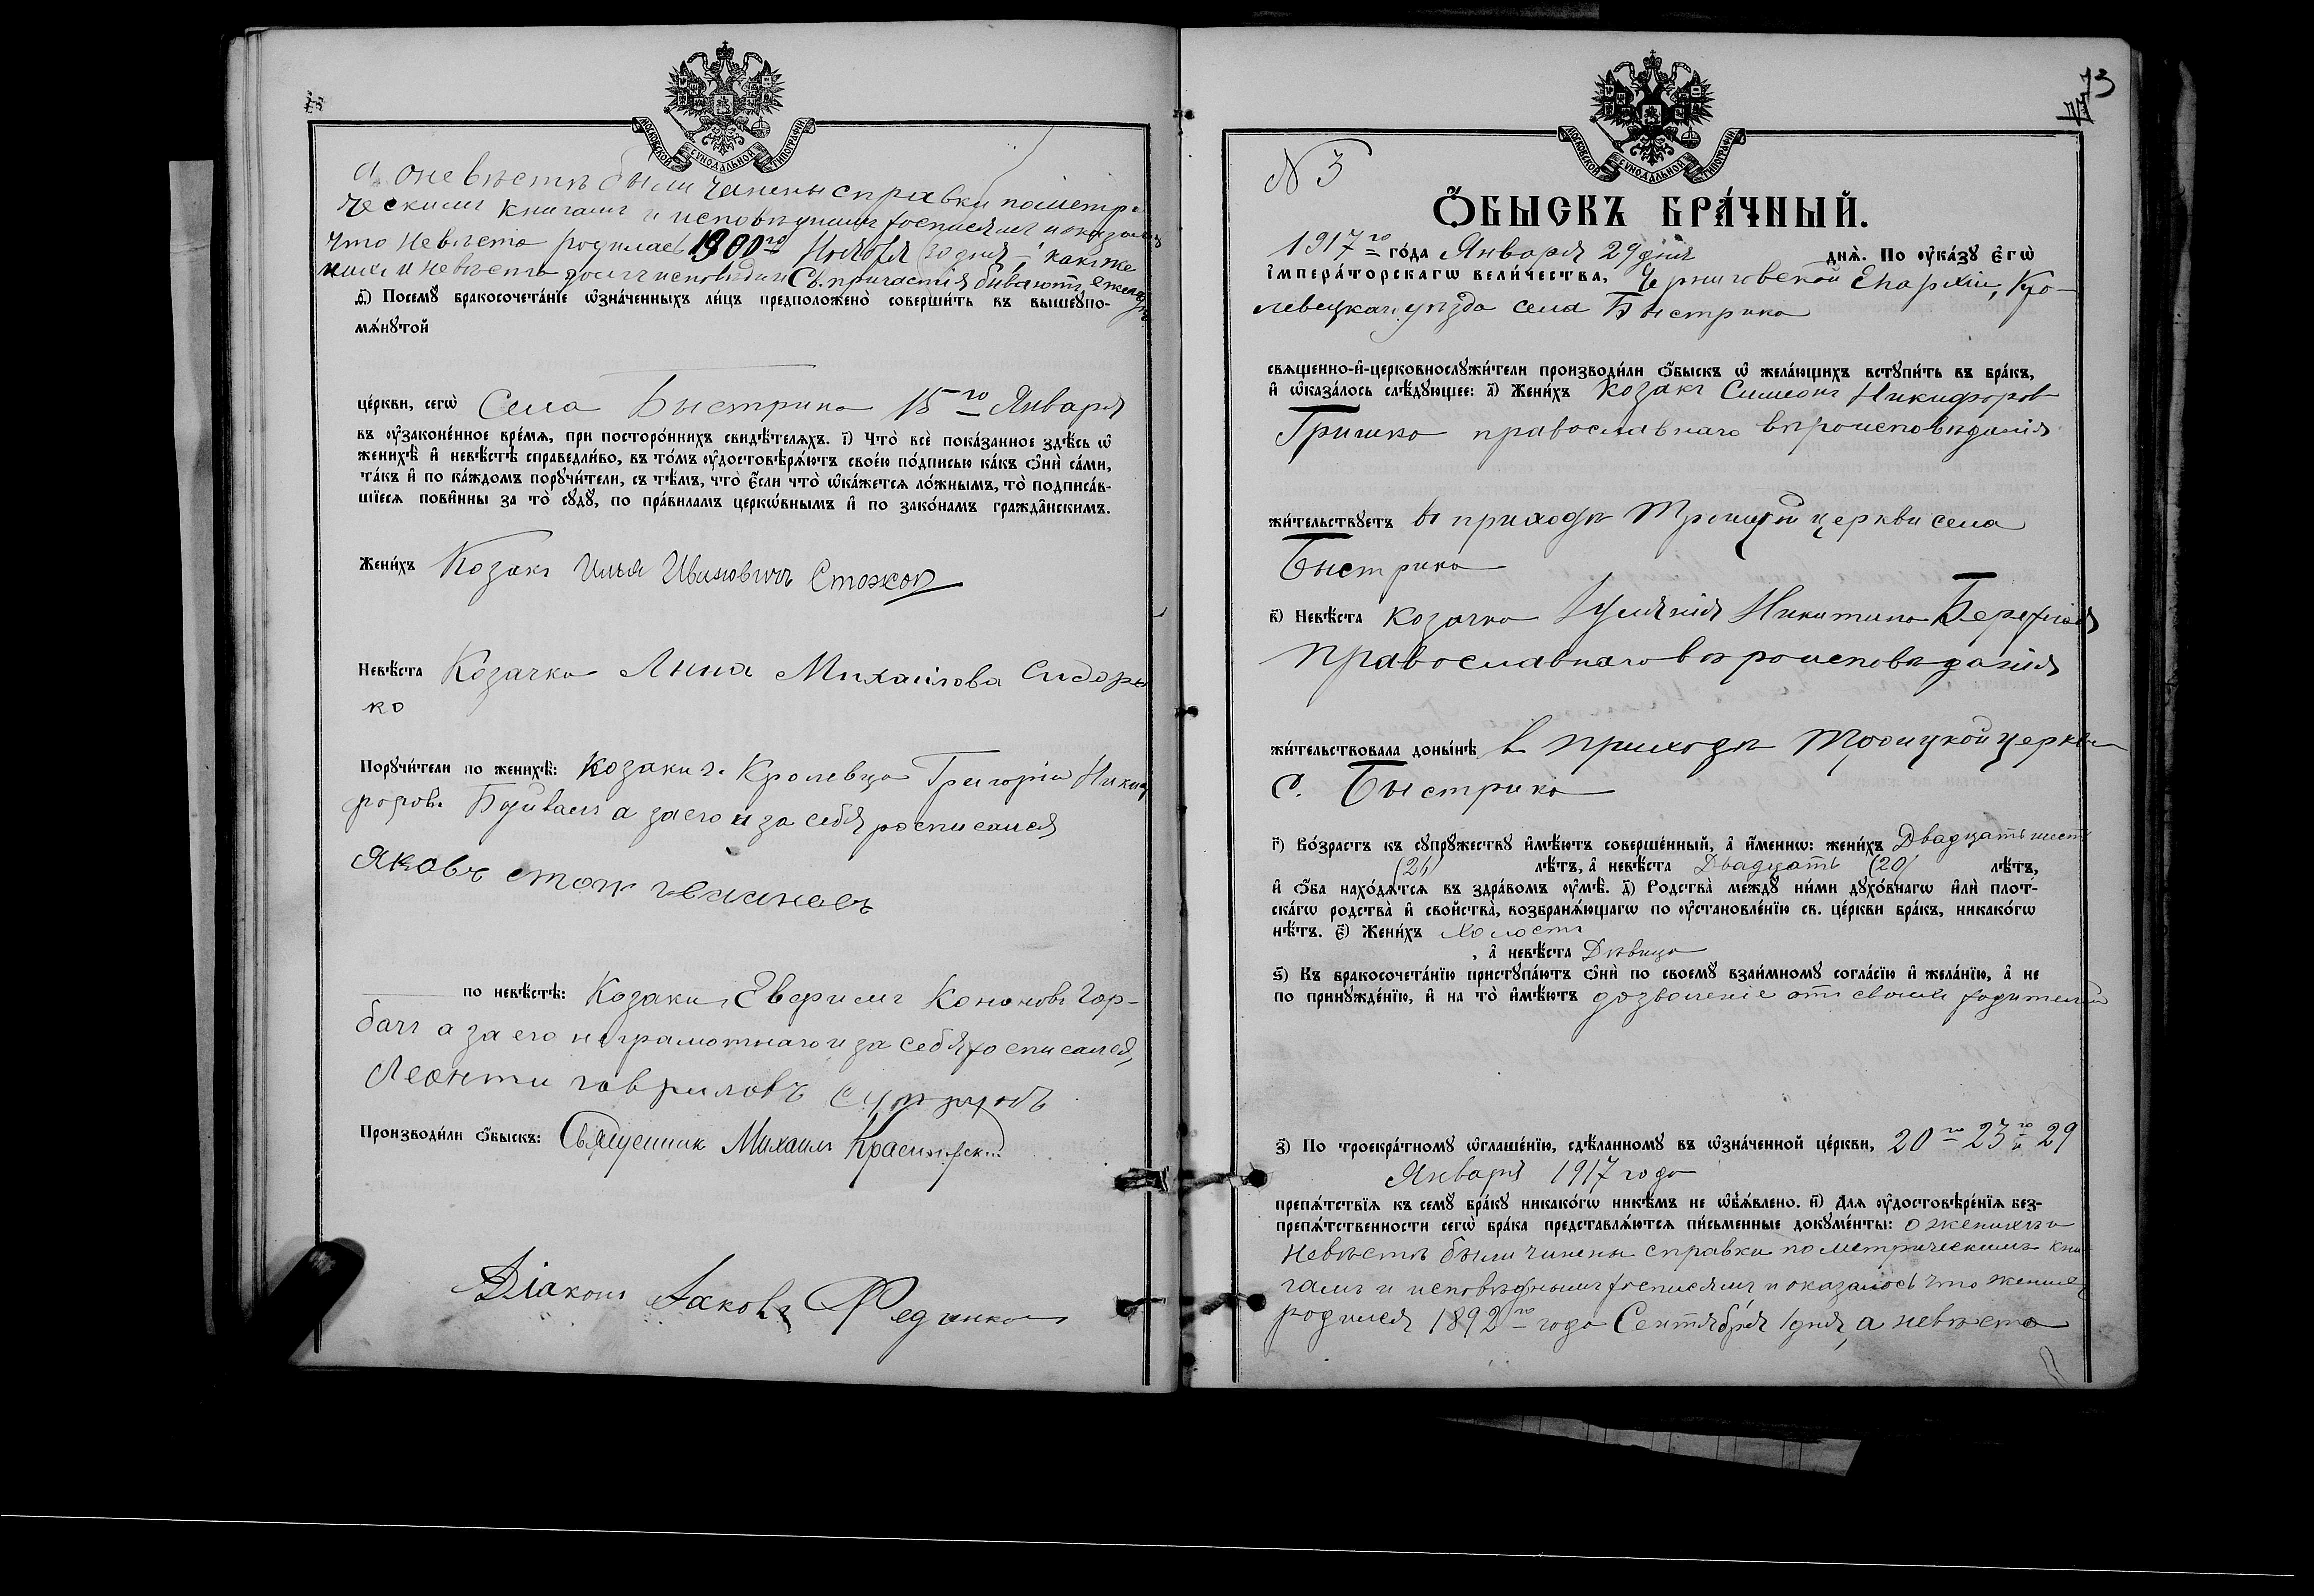 МОСКОВСКОЙ СѴНОДАЛЬНОЙ ТИПОГРАФІИ
а о невѣстѣ были чинены справки по метри
ческимъ книгамъ и исповѣднымъ росписямъ и оказалось
что невѣста родилась 1900го Ноября 30 дня – какъ же
нихъ и невѣста долгъ исповѣди и Св. причастія бываютъ ежегодно
ѳ҃) Посемꙋ̀ бракосочета́нїе ѡ҆зна́ченныхъ ли́цъ предположено̀ соверши́ть въ вышеꙋпо-
мѧ́нꙋтой
це́ркви, сегѡ̀ Села Быстрика 15го Января
въ ꙋ҆законе́нное вре́мѧ, при посторо́ннихъ свидѣ́телѧхъ. і҃) Что̀ всѐ пока́занное здѣ́сь ѡ҆
женихѣ̀ и҆ невѣ́стѣ справедли́во, въ то́мъ ꙋ҆достовѣрѧ́ютъ свое́ю по́дписью ка́къ ѻ҆нѝ са́ми,
та́къ и҆ по ка́ждомъ порꙋчи́тели, съ тѣ́мъ, что̀ є҆́сли что̀ ѡ҆ка́жетсѧ ло́жнымъ, то̀ подписа́в-
шїесѧ пови́нны за то̀ сꙋдꙋ̀, по пра́виламъ церкѡ́внымъ и҆ по зако́намъ гражда̑нскимъ.
Жени́хъ Козакъ Илья Ивановичъ Стожокъ
Невѣ́ста Козачка Анна Михаилова Сидоре
ко
Порꙋчи́тели по женихѣ̀: Козаки г. Кролевца Григорій Никиф
форовъ а за его и за себя росписался
Яковъ
по невѣ́стѣ: Козаки, Евфимъ Кононовъ Гор-
бачъ а за его неграмотнаго и за себя росписался,
Леонти гавриловъ
Производи́ли ѻ҆́быскъ: Священник Михаилъ
Діаконъ Іаковъ Фединко
73
МОСКОВСКОЙ СѴНОДАЛЬНОЙ ТИПОГРАФІИ
N 3
Ѻ҆́БЫСКЪ БРА́ЧНЫЙ.
1917го го́да Января 29 дня днѧ̀. По ᲂу҆ка́зꙋ є҆гѡ̀
і҆мпера́торскагѡ вели́чества, Черниговской Епархіи, Кро-
левецкаго уѣзда села Быстрика
свѧщенно-и҆-церковнослꙋжи́тели производи́ли ѻ҆́быскъ ѡ҆ жела́ющихъ встꙋпи́ть въ бра́къ,
и҆ ѡ҆каза́лось слѣ́дꙋющее: а҃) Жени́хъ Козакъ Симеонъ Никифоровъ
Гришко православнаго вѣроисповѣданія
жи́тельствꙋетъ въ приходѣ Троицкой церкви села
Быстрика
в҃) Невѣ́ста Козачка Іуліанія Никитина Бережная
православнаго вѣроисповѣданія
жи́тельствовала доны́нѣ в приходѣ Троицкой церкви
с. Быстрика
г҃) Во́зрастъ къ сꙋпрꙋ́жествꙋ и҆мѣ́ютъ соверше́нный, а҆ и҆́меннѡ: жени́хъ Двадцать шесть
(26) лѣ́тъ, а҆ невѣ́ста Двадцать (20) лѣ́тъ,
и҆ ѻ҆́ба нахо́дѧтсѧ въ здра́вомъ ᲂу҆мѣ̀. д҃) Родства̀ междꙋ̀ ни́ми дꙋхо́внагѡ и҆лѝ пло́т-
ска́гѡ родства̀ и҆ сво́йства̀, возбранѧ́ющагѡ по ᲂу҆становле́нїю св. це́ркви бра́къ, никако́гѡ
нѣ́тъ. є҃) Жени́хъ Холостъ
, а҆ невѣ́ста Дѣвица
ѕ҃) Къ бракосочета́нїю пристꙋпа́ютъ ѻ҆нѝ по своемꙋ̀ взаи́мномꙋ согла́сїю и҆ жела́нїю, а҆ не
по принꙋжде́нїю, и҆ на то̀ и҆мѣ́ютъ дозволеніе отъ своихъ родителей
з҃) По троекра́тномꙋ ѡ҆глаше́нїю, сдѣ́ланномꙋ въ ѡ҆зна́ченной це́ркви, 20го 23го и 29
Января 1917 года
препѧ́тствїѧ къ семꙋ̀ бра́кꙋ никако́гѡ никѣ́мъ не ѡ҆б̾ѧ́влено. и҃) Длѧ ᲂу҆достовѣре́нїѧ без-
препѧ́тственности сегѡ̀ бра́ка представлѧ́ютсѧ пи́сьменные докꙋме́нты: о женихѣ и
невѣстѣ были чинены справки по метрическимъ кни-
гамъ и исповѣднымъ росписямъ и оказалось что женихъ
родился 1892го года Сентября 1 дня, а невѣста